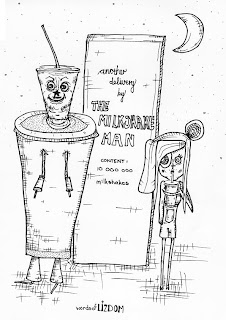 another
delivery
by
THE
MILKSHAKE
MAN
CONTENT:
10 000 000
milkshakes
words of LIZDOM